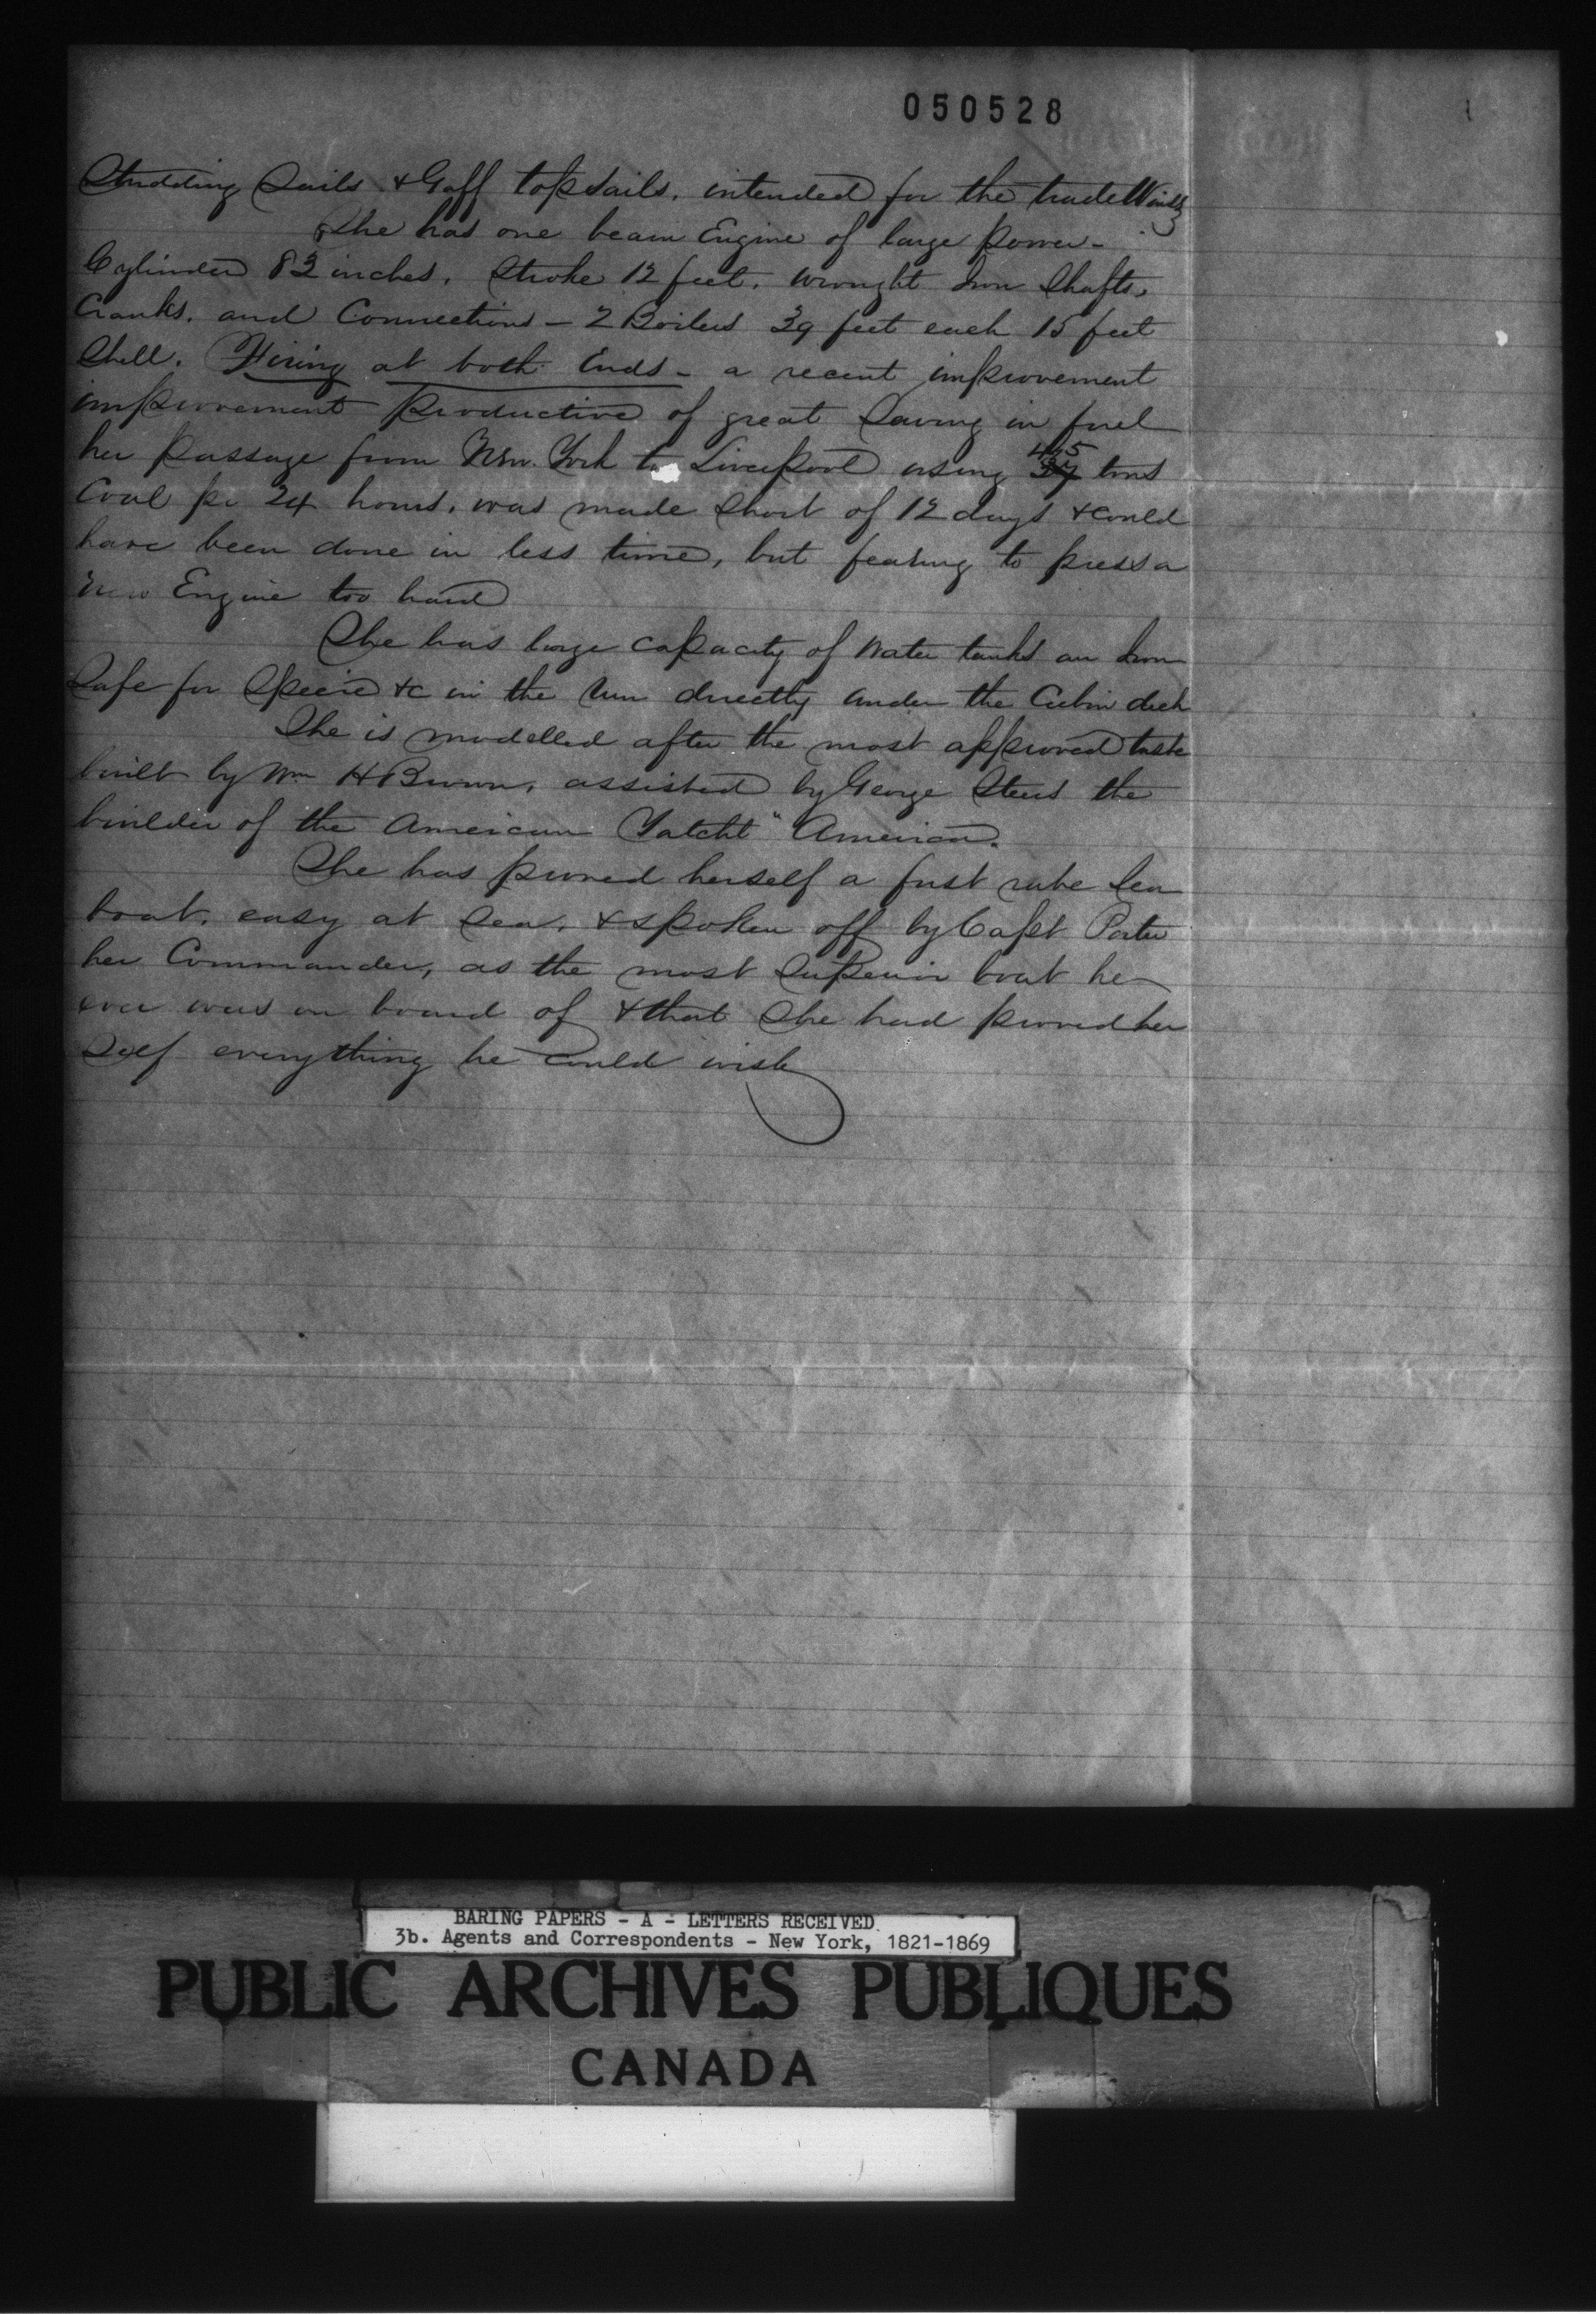 050528
Studding Sails & Gaff topsails, intended for the trade Winds
She has one beam Engine of large power -
Cylinder 82 inches, Stroke 12 feet, wrought Iron Shafts,
Cranks, and Connections - 2 Boilers 39 feet each 15 feet
Shell. Firing at both Ends - a recent improvement
improvement productive of great Saving in fuel
her passage from New York to Liverpool using 45 tons
Coal pr 24 hours, was made short of 12 days & could
have been done in less time, but fearing to press a
new Engine too hard
She has large capacity of Water tanks an Iron
Safe for Specie &c in the run directly under the Cabin deck
She is modelled after the most approved taste
built by Wm H Brown, assisted by George Steers the
builder of the American Yatcht "America.
She has proved herself a first rate Sea
boat, easy at Sea, & spoken off by Capt Porter
her Commander, as the most Superior boat he
ever was on board of & that She had proved her
Self everything he could wish
BARING PAPERS - A - LETTERS RECEIVED
3b. Agents and Correspondents - New York, 1821-1869
PUBLIC ARCHIVES PUBLIQUES
CANADA